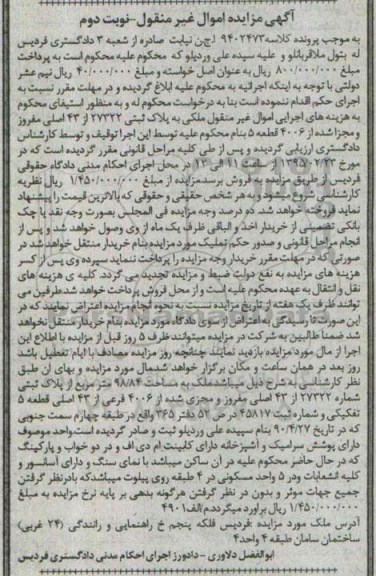 آگهی مزایده اموال غیر منقول-نوبت دوم
به موجب پرونده کلاسه ۹۴۰۲۴۷۳ اج‌ن نیابت صادره از شعبه ۳ دادگستری فردیس
له بتول ملاقربانلو و علیه سیده علی وردیلو که محکوم علیه محکوم است به پرداخت
مبلغ ۸۰۰/۰۰۰/۰۰۰ ریال به عنوان اصل خواسته و مبلغ ۴۰/۰۰۰/۰۰۰ ریال نیم عشر
دولتی با توجه به اینکه اجرائیه به محکوم علیه ابلاغ گردیده و در مهلت مقرر نسبت به
اجرای حکم اقدام ننموده است بنا به درخواست محکوم له و به منظور استیفای محکوم
به هزینه های اجرایی اموال غیر منقول ملکی به پلاک ثبتی ۲۷۳۲۲ از ۴۳ اصلی مفروز
و مجزا شده از ۴۰۰۶ قطعه ۵ بنام محکوم علیه توسط این اجرا توقیف و توسط کارشناس
دادگستری ارزیابی گردیده و پس از طی کلیه مراحل قانونی مقرر گردیده است که در
مورخ ۱۳۹۵/۰۲/۲۳ از ساعت ۱۱ الی ۱۲ در محل اجرای احکام مدنی دادگاه حقوقی
فردیس از طریق مزایده به فروش برسد مزایده از مبلغ ۱/۴۵۰/۰۰۰/۰۰۰ ریال نظریه
کارشناسی شروع میشود و به هر شخص حقیقی و حقوقی که بالاترین قیمت را پیشنهاد
نماید فروخته خواهد شد. ده درصد وجه مزایده فی المجلس بصورت وجه نقد یا چک
بانکی تضمینی از خریدار اخذ و الباقی ظرف یک ماه از وی وصول خواهد شد و پس از
انجام مراحل قانونی و صدور حکم تملیک مورد مزایده بنام خریدار منتقل خواهد شد در
صورتی که در مهلت مقرر خریدار وجه مزایده را پرداخت ننماید سپرده وی پس از کسر
هزینه های مزایده به نفع دولت ضبط و مزایده تجدید می گردد. کلیه ی هزینه های
نقل و انتقال به عهده محکوم علیه است و از محل فروش پرداخت خواهد شد طرفین می
توانند ظرف یک هفته از تاریخ مزایده نسبت به نحوه انجام مزایده اعتراض نمایند که در
این صورت تا رسیدگی به اعتراض از سوی دادگاه مورد مزایده بنام خریدار منتقل نخواهد
شد ضمناً طالبین به شرکت در مزایده میتوانند ظرف ۵ روز قبل از مزایده با اطلاع این
اجرا از مال مورد مزایده بازدید نمایند چنانچه روز مزایده مصادف با ایام تعطیل باشد
روز بعد در همان ساعت و مکان برگزار خواهد شد مال مورد مزایده و بهای ان طبق
نظر کارشناسی به شرح ذیل میباشد ملک به مساحت ۹۸/۸۴ متر مربع از پلاک ثبتی
شماره ۲۷۳۲۲ از ۴۳ اصلی مفروز و مجزی شده از ۴۰۰۶ فرعی از ۴۳ اصلی قطعه ۵
تفکیکی و شماره ثبت ۴۵۸۱۷ در ص ۵۲ دفتر ۳۶۵ واقع در طبقه چهارم سمت جنوبی
که در تاریخ ۹۰/۴/۲۷ بنام سپیده علی وردیلو ثبت و صادر گردیده است واحد موصوف
دارای پوشش سرامیک و آشپزخانه دارای کابینت ام دی اف و در دو خواب و پارکینگ
که در حال حاضر محکوم علیه در آن ساکن میباشد با نمای سنگ و دارای آسانسور و
کلیه انشعابات و در ۵ واحد مسکونی در ۴ طبقه روی پیلوت میباشد که با در نظر گرفتن
جمیع جهات موثر و بدون در نظر گرفتن هرگونه بدهی بر پایه نرخ مزایده به مبلغ
۱/۴۵۰/۰۰۰/۰۰۰ ریال برآورد میگردد.م الف ۴۹۰۱
آدرس ملک مورد مزایده :فردیس فلکه پنجم خ راهنمایی و رانندگی (۲۴ غربی)
ساختمان سامان طبقه ۴ واحد ۴
ابوالفضل دلاوری - دادورز اجرای احکام مدنی دادگستری فردیس